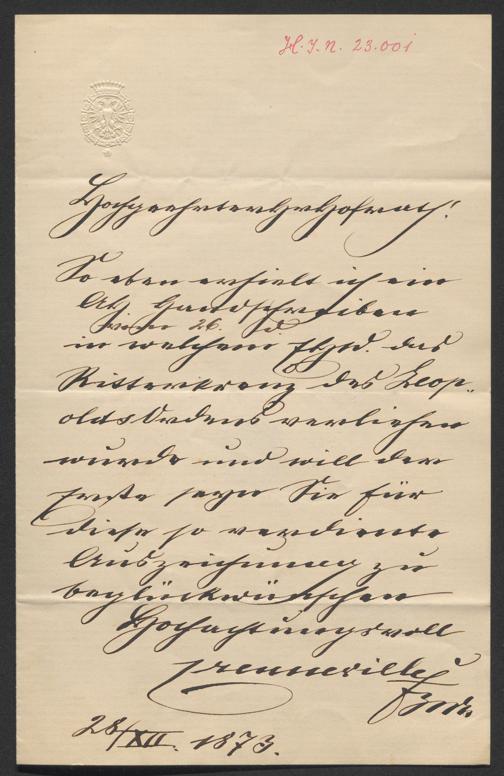 H.I.N. 23.001
Hochgeehrter Hr Hofrath!
So eben erhielt ich ein
Ah. Handschreiben
vom 26. d.
in welchem das
Ritterkreuz des Leop-
olds Ordens verliehen
wurde und will der
Erste seyn Sie für
diese so verdiente
Auszeichnung zu
beglückwünschen
Hochachtungsvoll
Crenneville
28/XII. 1873.